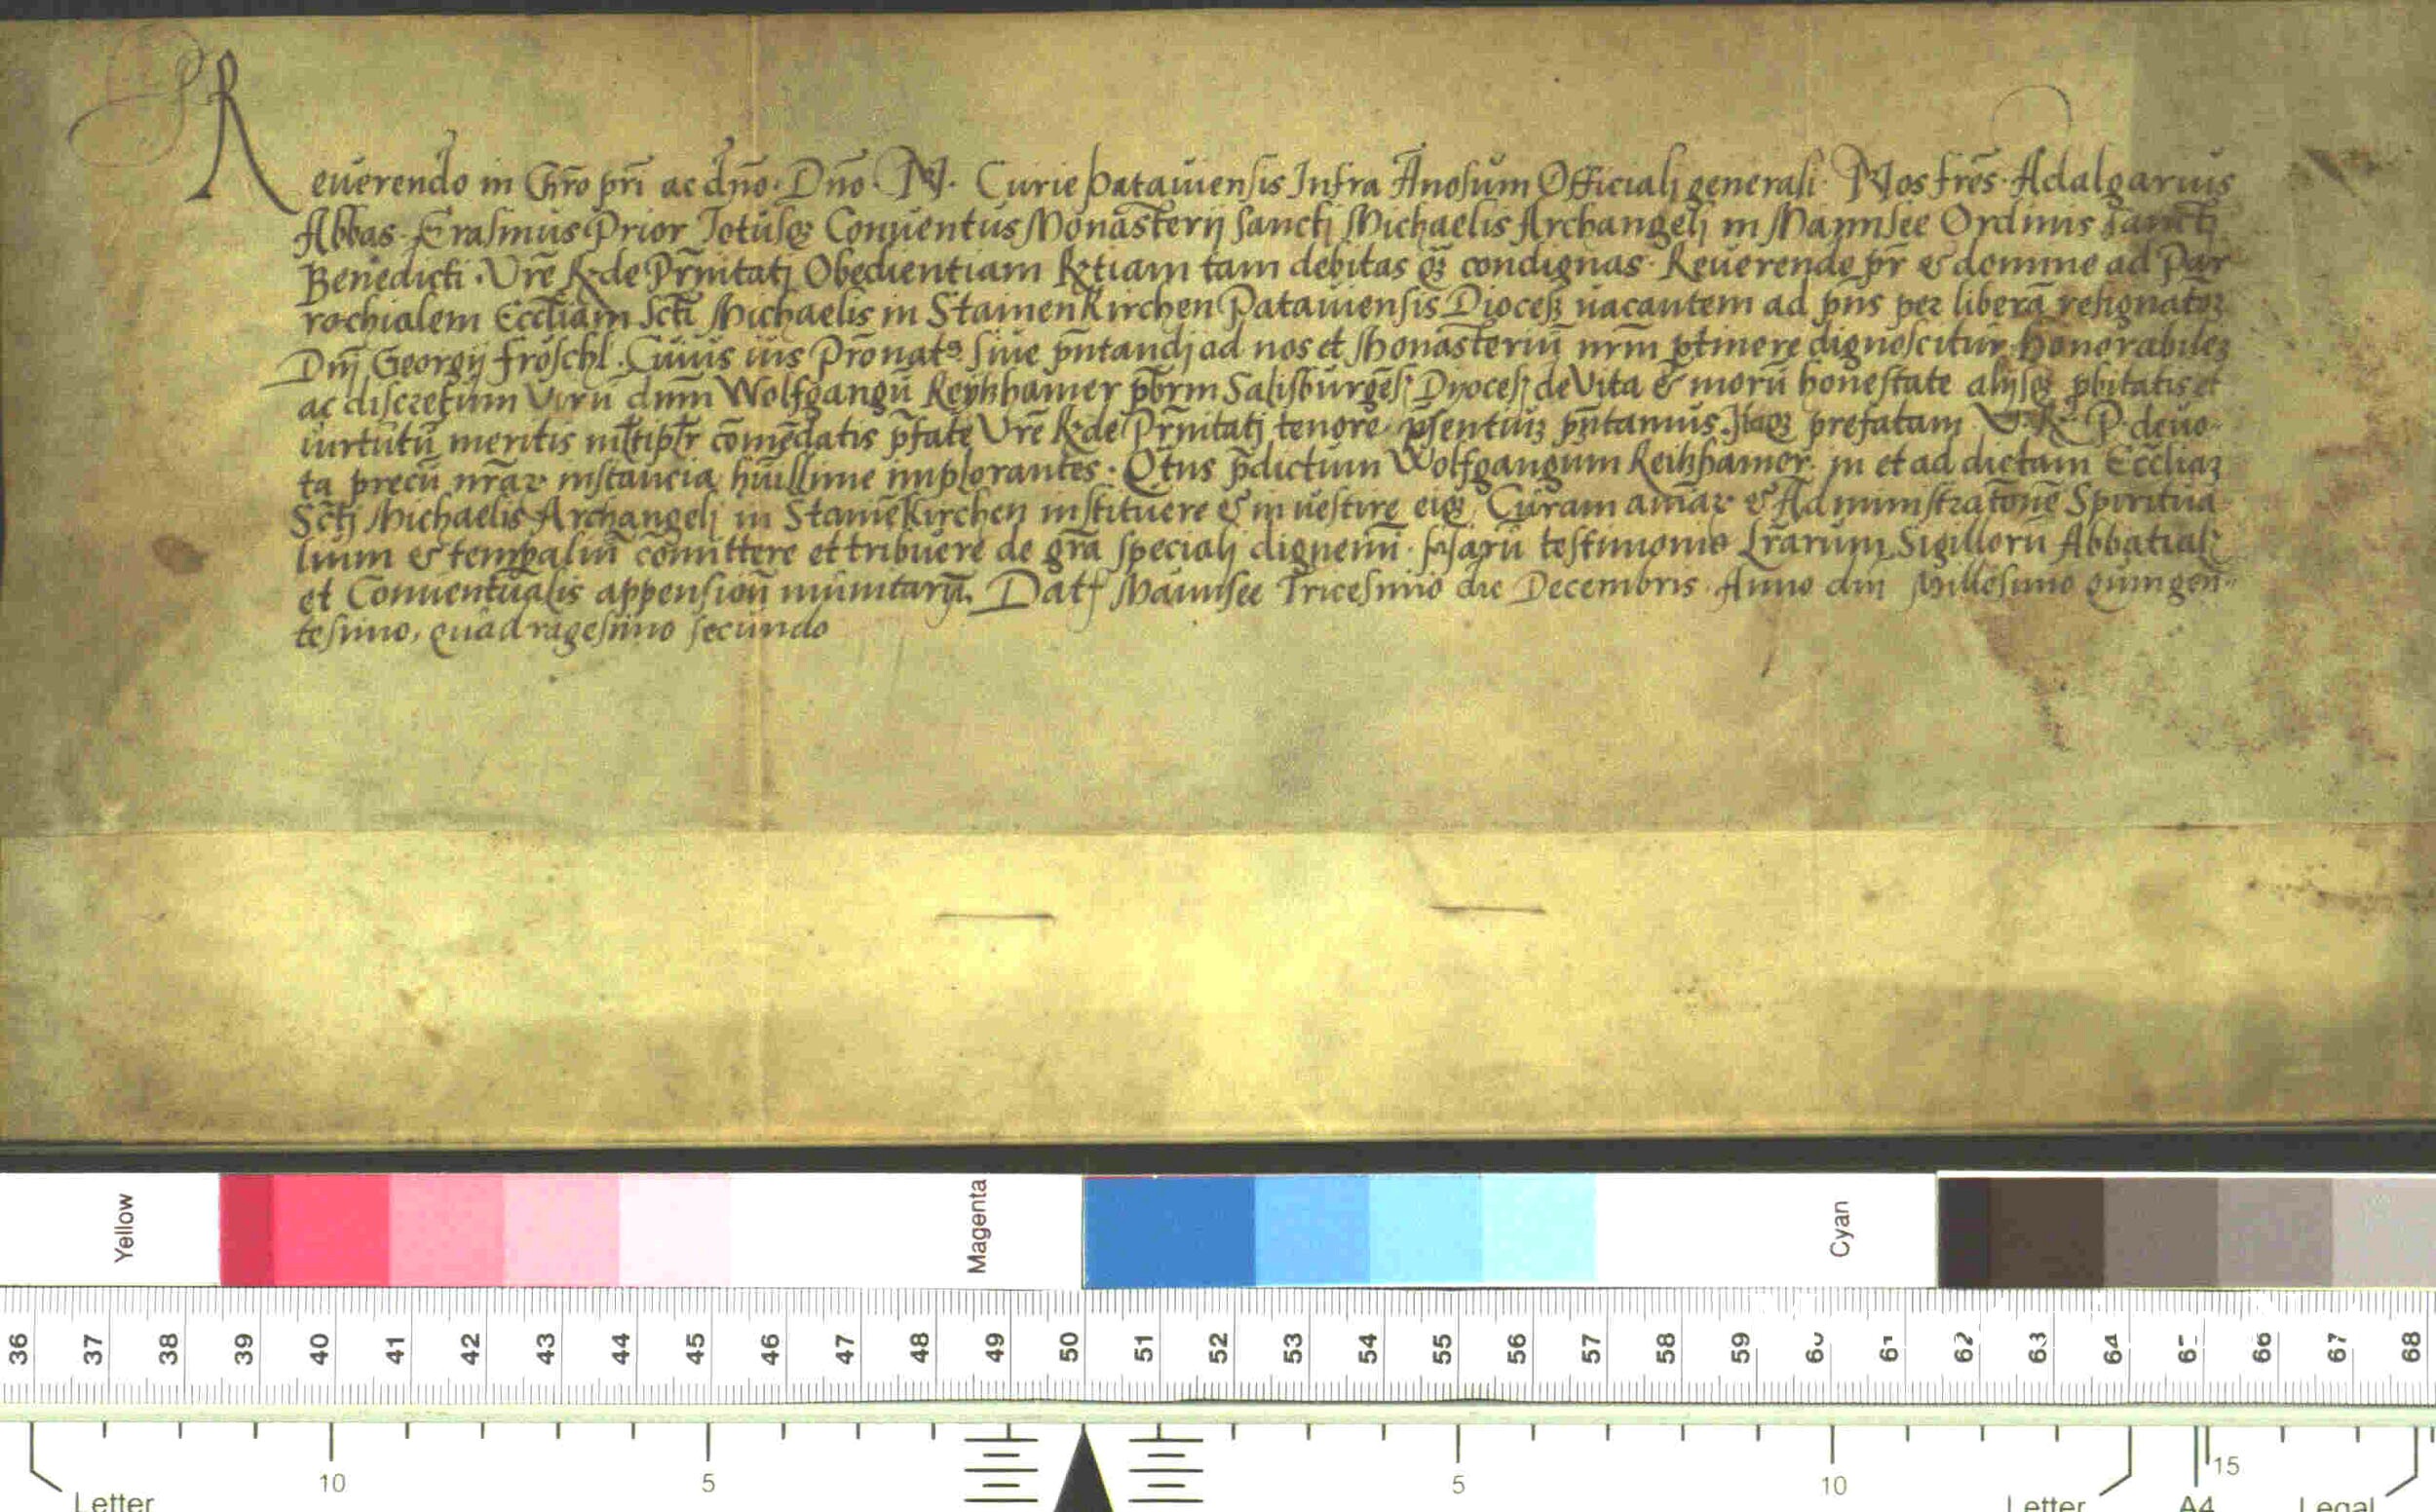 Reuerendo in Chr̄o pr̄i ac dn̄o. Dn̄o. N. Curie patauiensis Infra Anosum Officialj generali. Nos fr̄es. Adalgarius
Abbas. Erasmus Prior Totusqꝫ Conuentus Monasterij Sanctj Michaelis Archangelj in Mannsee Ordinis Sanctj
Benedicti. Vrē R.de Pr̄nitatj Obedientiam tam debitas qꝫ condignas. Reuerende pr̄ & domine ad Par
rochialem Eccl̄iam Sctī Michaelis in StainenKirchen Patauiensis Dioces uacantem ad pn̄s per liberā resignatōꝫ
Dnj̄ Georgij fröschl. Cuius ius Prōnatꝰ siue pn̄tandj ad nos et Monasteriū nr̄m ptinere dignoscitur honorabileꝫ
ac discretum Virū dnm̄ Wolfgangū Reykhamer pbr̄m Salisburgēs Dyoces de Vita & morū honestate alijsqꝫ pbitatis et
uirtutū meritis ml̄tiplr̄ cōmēdatis pf̄ate Vrē R.de Pr̄nitatj tenore pn̄tamus Itaqꝫ prefatam V. R. P. deuo
ta precū nr̄aꝝ instancia hūillime implorantes. Qt̄us pd̄ictum Wolfgangum Reikhamer. in et ad dictam Eccl̄iaꝫ
Sctj̄ Michaelis Archangelj in StaineKirchen instituere & inuestire eiqꝫ Curam aīaꝝ & Adminstratōnē Spiritua
lium & tempaliū cōmittere et tribuere de grā specialj dignemī. testimonio Lr̄arum Sigillorū Abbatial
et Conuentualis appensioū munitarū. Datꝭ Mannsee Tricesimo die Decembris. Anno dni Millesimo quingen
tesimo, quadragesimo secundo
Yellow
Magenta
Cyan
36 37 38 39 40 41 42 43 44 45 46 47 48 49 50 51 52 53 54 55 56 57 58 59 60 61 62 63 64 65 66 67 68
10 5 5 10 15
Letter Letter A4 Legal